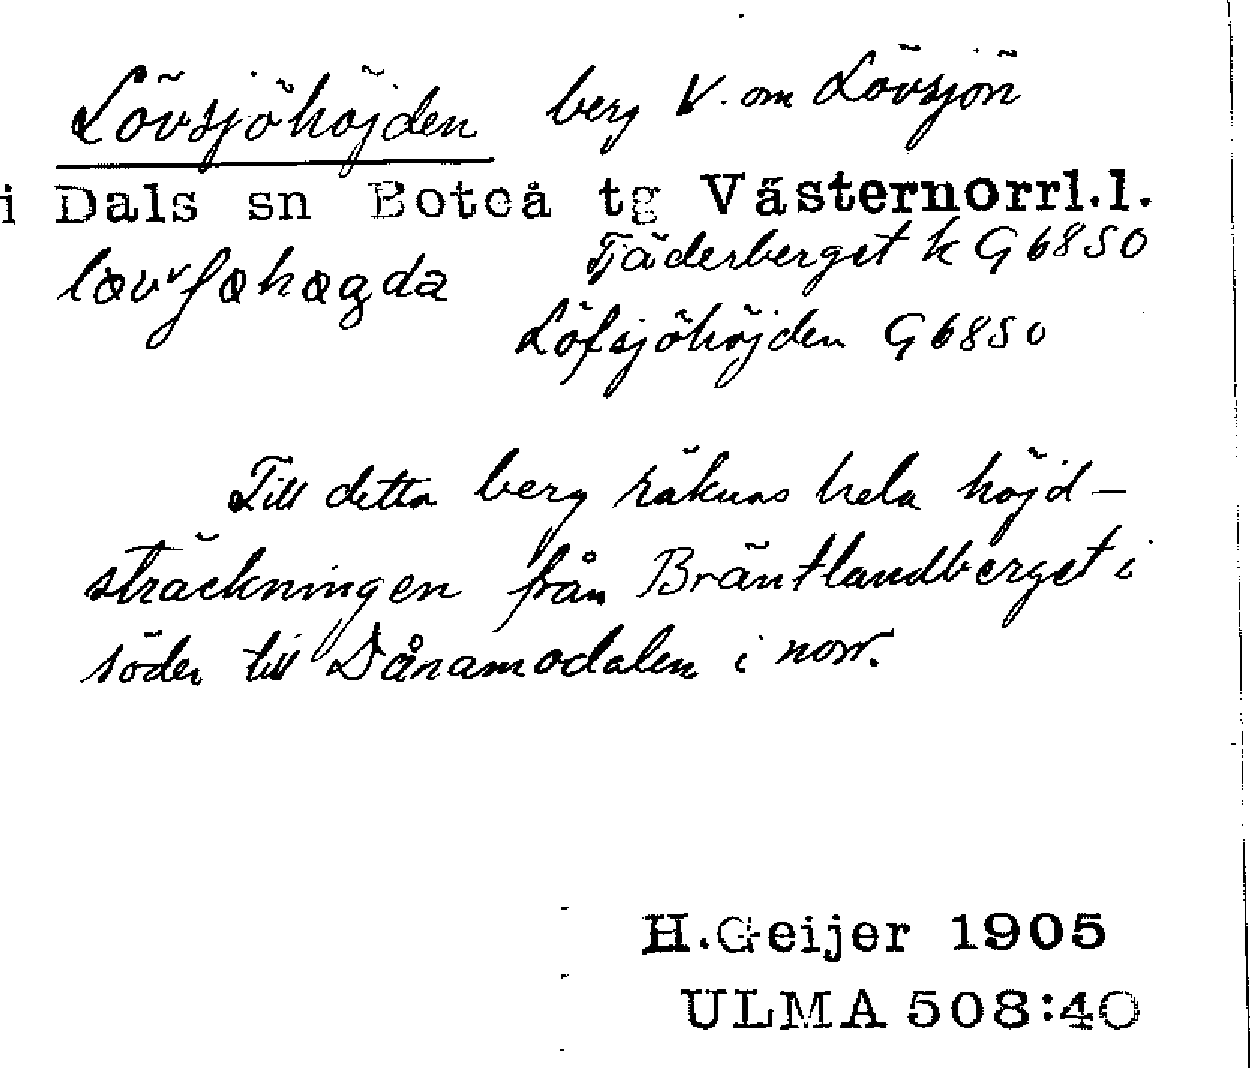 Lövsjöhöjden berg V. om Lövsjön
i Dals sn Boteå tg Västernorrl.l.
Tjäderberget k G6850
Löfsjöhöjden G6850
Till detta berg räknas hela höjd-
sträckningen från Bräntlandberget i
söder till Dånamodalen i norr.
H.Geijer 1905
ULMA 508:40